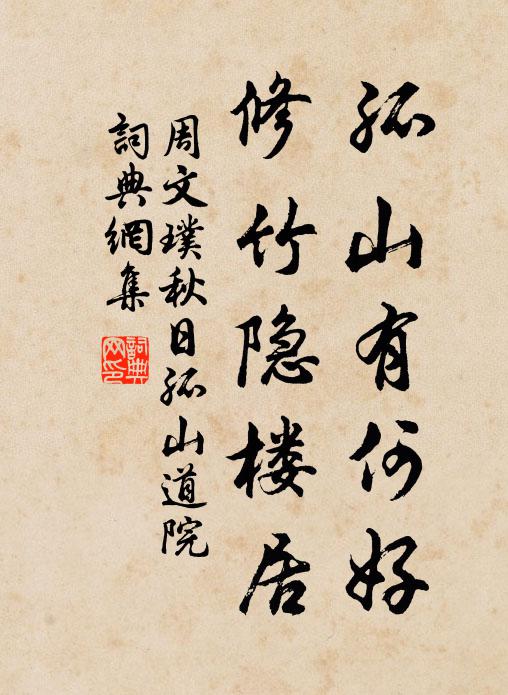 孤山有何好
修竹隐楼居
周文璞秋日孤山道院
詞典網集
詞典
网印